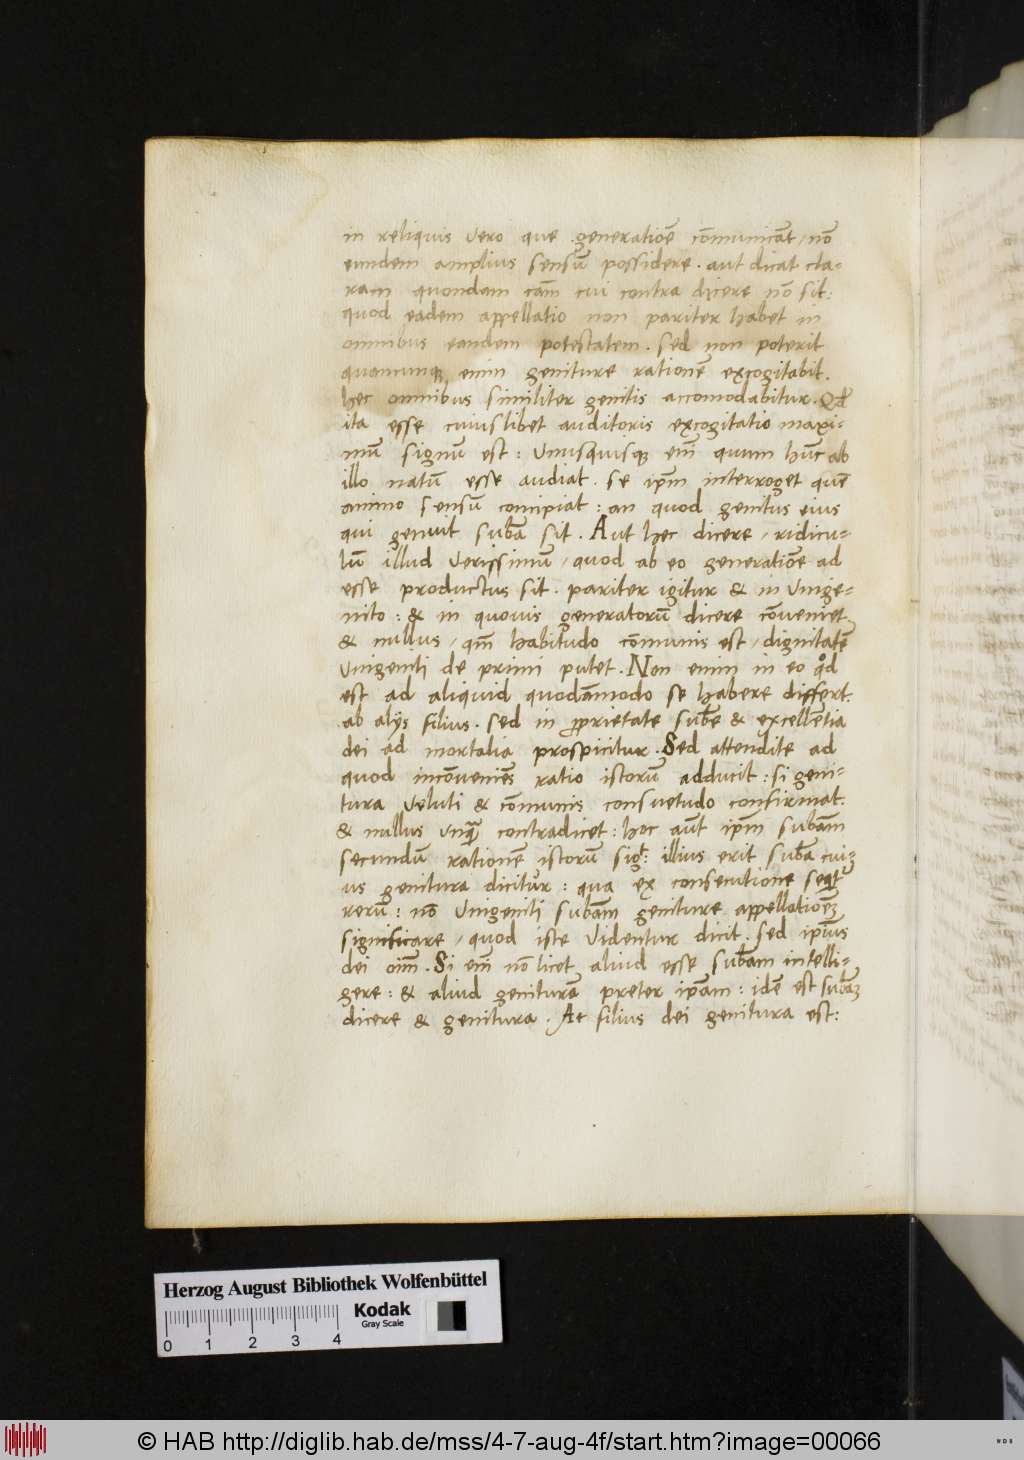 in reliquis vero que generatiōe cōmunicāt / nō
eundem amplius sensū possidere . aut dicat cla-
ram quondam cām cui contra dicere nō sit :
quod eadem appellatio non pariter habet in
omnibus eandem potestatem . sed non poterit
quamcunqꝫ enim geniture rationē excogitabit .
hec omnibus similiter genitis accomodabitur . Qđ
ita esse cuiuslibet auditoris excogitatio maxi-
mū signū est : Vnusquisqꝫ em̄ quum hūc ab
illo natū esse audiat . se ip̄m interroget quē
animo sensū concipiat : an quod genitus eius
qui genuit sub̄a sit . Aut hec dicere / ridicu-
lū illud verissimū / quod ab eo generatiōe ad
esse productus sit . pariter igitur & in vnige-
nito : & in quouis generatorū dicere cōueniet
& nullus / qm̄ habitudo cōmunis est / dignitatē
Vnigeniti de primi putet . Non enim in eo qd
est ad aliquid quodāmodo se habere differt .
ab alijs filius . sed in ꝓprietate sub̄e & excellētia
dei ad mortalia prospicitur . Sed attendite ad
quod incōueniēs ratio istorū adducit : si geni-
tura veluti & cōmunis consuetudo confirmat .
& nullus vnqꝫ contradicet : hec aūt ip̄m subam̄
secundū rationē istorū sig : illius erit sub̄a cui-
us genitura dicitur : qua ex consecutione seqtur
rerū : nō Vnigeniti subam̄ geniture appellatiōēꝫ
significare / quod iste videntur dicit . sed ip̄ius
dei oim̄ . Si em̄ nō licet aliud esse sub̄am intelli-
gere : & aliud geniturā preter ip̄am : idē est sub̄aꝫ
dicere & genitura . At filius dei genitura est :
Herzog August Bibliothek Wolfenbüttel
Kodak
Gray Scale
0 1 2 3 4
© HAB http://diglib.hab.de/mss/4-7-aug-4f/start.htm?image=00066